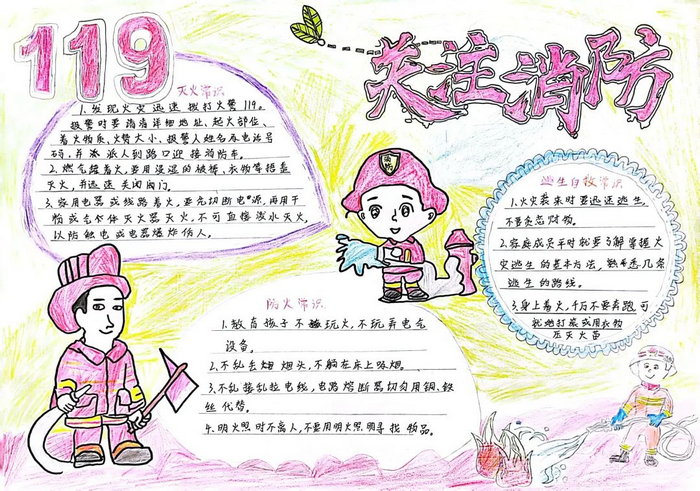 119
关注消防
灭火常识
1.发现火灾迅速拨打火警119。
报警时要讲清详细地址、起火部位、
着火物质、火势大小、报警人姓名及电话号
码,并派人到路口迎接消防车。
2.燃气罐着火,要用浸湿的被褥、衣物等捂盖
灭火,并迅速关闭阀门。
3.家用电器或线路着火,要先切断电源,再用干
粉或气体灭火器灭火,不可直接泼水灭火,
以防触电或电器爆炸伤人。
消防
逃生自救常识
1.火灾袭来时要迅速逃生,
不要贪恋财物。
2.家庭成员平时就要了解掌握火
灾逃生的基本方法,熟悉几条
逃生的路线。
3.身上着火,千万不要奔跑,可
就地打滚或用衣物
压灭火苗
防火常识
1.教育孩子不玩火,不玩弄电气
设备。
2.不乱丢烟烟头,不躺在床上吸烟。
3.不乱接乱拉电线,电路熔断器切勿用铜、铁
丝代替。
4.明火照时不离人,不要用明火照明寻找物品。